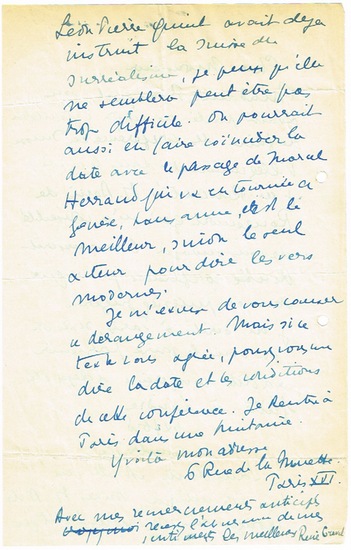 Léon Pierre Quint avait déjà
instruit la Suisse du
surréalisme, je pense qu'elle
ne semblera peut être pas
trop difficile. On pourrait
aussi en faire coïncider la
date avec le passage de Marcel
Herrand qui va en tournée à
Genève, sans amie, c'est le
meilleur, sinon le seul
acteur pour dire les vers
modernes.
Je m'excuse de vous causer
ce dérangement. Mais si ce
texte vous agrée, pouvez vous me
dire la date et les conditions
de cette conférence. Je rentre à
Paris dans une huitaine.
Y voilà mon adresse
6 Rue de la Muette.
Paris XVI.
Avec mes remerciements anticipés
recevez l'assurance de mes
sentiments les meilleurs René